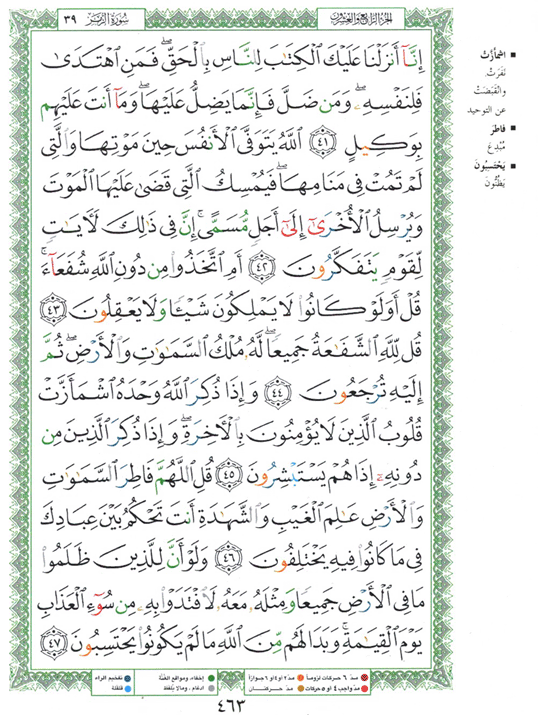 سُورَةُ الزُّمَر ٣٩
الجزء الرابع والعشرون
إِنَّآ أَنزَلْنَا عَلَيْكَ ٱلْكِتَٰبَ لِلنَّاسِ بِٱلْحَقِّ ۖ فَمَنِ ٱهْتَدَىٰ
فَلِنَفْسِهِۦ ۖ وَمَن ضَلَّ فَإِنَّمَا يَضِلُّ عَلَيْهَا ۖ وَمَآ أَنتَ عَلَيْهِم
بِوَكِيلٍ ٤١ ٱللَّهُ يَتَوَفَّى ٱلْأَنفُسَ حِينَ مَوْتِهَا وَٱلَّتِى
لَمْ تَمُتْ فِى مَنَامِهَا ۖ فَيُمْسِكُ ٱلَّتِى قَضَىٰ عَلَيْهَا ٱلْمَوْتَ
وَيُرْسِلُ ٱلْأُخْرَىٰٓ إِلَىٰٓ أَجَلٍ مُّسَمًّى ۚ إِنَّ فِى ذَٰلِكَ لَءَايَٰتٍ
لِّقَوْمٍ يَتَفَكَّرُونَ ٤٢ أَمِ ٱتَّخَذُوا۟ مِن دُونِ ٱللَّهِ شُفَعَآءَ ۚ
قُلْ أَوَلَوْ كَانُوا۟ لَا يَمْلِكُونَ شَيْـًٔا وَلَا يَعْقِلُونَ ٤٣
قُل لِّلَّهِ ٱلشَّفَٰعَةُ جَمِيعًا ۖ لَّهُۥ مُلْكُ ٱلسَّمَٰوَٰتِ وَٱلْأَرْضِ ۖ ثُمَّ
إِلَيْهِ تُرْجَعُونَ ٤٤ وَإِذَا ذُكِرَ ٱللَّهُ وَحْدَهُ ٱشْمَأَزَّتْ
قُلُوبُ ٱلَّذِينَ لَا يُؤْمِنُونَ بِٱلْءَاخِرَةِ ۖ وَإِذَا ذُكِرَ ٱلَّذِينَ مِن
دُونِهِۦٓ إِذَا هُمْ يَسْتَبْشِرُونَ ٤٥ قُلِ ٱللَّهُمَّ فَاطِرَ ٱلسَّمَٰوَٰتِ
وَٱلْأَرْضِ عَٰلِمَ ٱلْغَيْبِ وَٱلشَّهَٰدَةِ أَنتَ تَحْكُمُ بَيْنَ عِبَادِكَ
فِى مَا كَانُوا۟ فِيهِ يَخْتَلِفُونَ ٤٦ وَلَوْ أَنَّ لِلَّذِينَ ظَلَمُوا۟
مَا فِى ٱلْأَرْضِ جَمِيعًا وَمِثْلَهُۥ مَعَهُۥ لَٱفْتَدَوْا۟ بِهِۦ مِن سُوٓءِ ٱلْعَذَابِ
يَوْمَ ٱلْقِيَٰمَةِ ۚ وَبَدَا لَهُم مِّنَ ٱللَّهِ مَا لَمْ يَكُونُوا۟ يَحْتَسِبُونَ ٤٧
■ اشْمَأَزَّتْ
نَفَرَتْ
وانْقَبَضَتْ
عن التوحيد
■ فَاطِرَ
مُبْدِعَ
■ يَحْتَسِبُونَ
يَظُنُّونَ
مدّ ٦ حركات لزوماً مدّ ٢ أو ٤ أو ٦ جوازاً
مدّ واجب ٤ أو ٥ حركات مدّ حركتان
إخفاء، ومواقع الغُنَّة
ادغام ، ومالا يُلفَظ
تفخيم الراء
قلقلة
٤٦٣